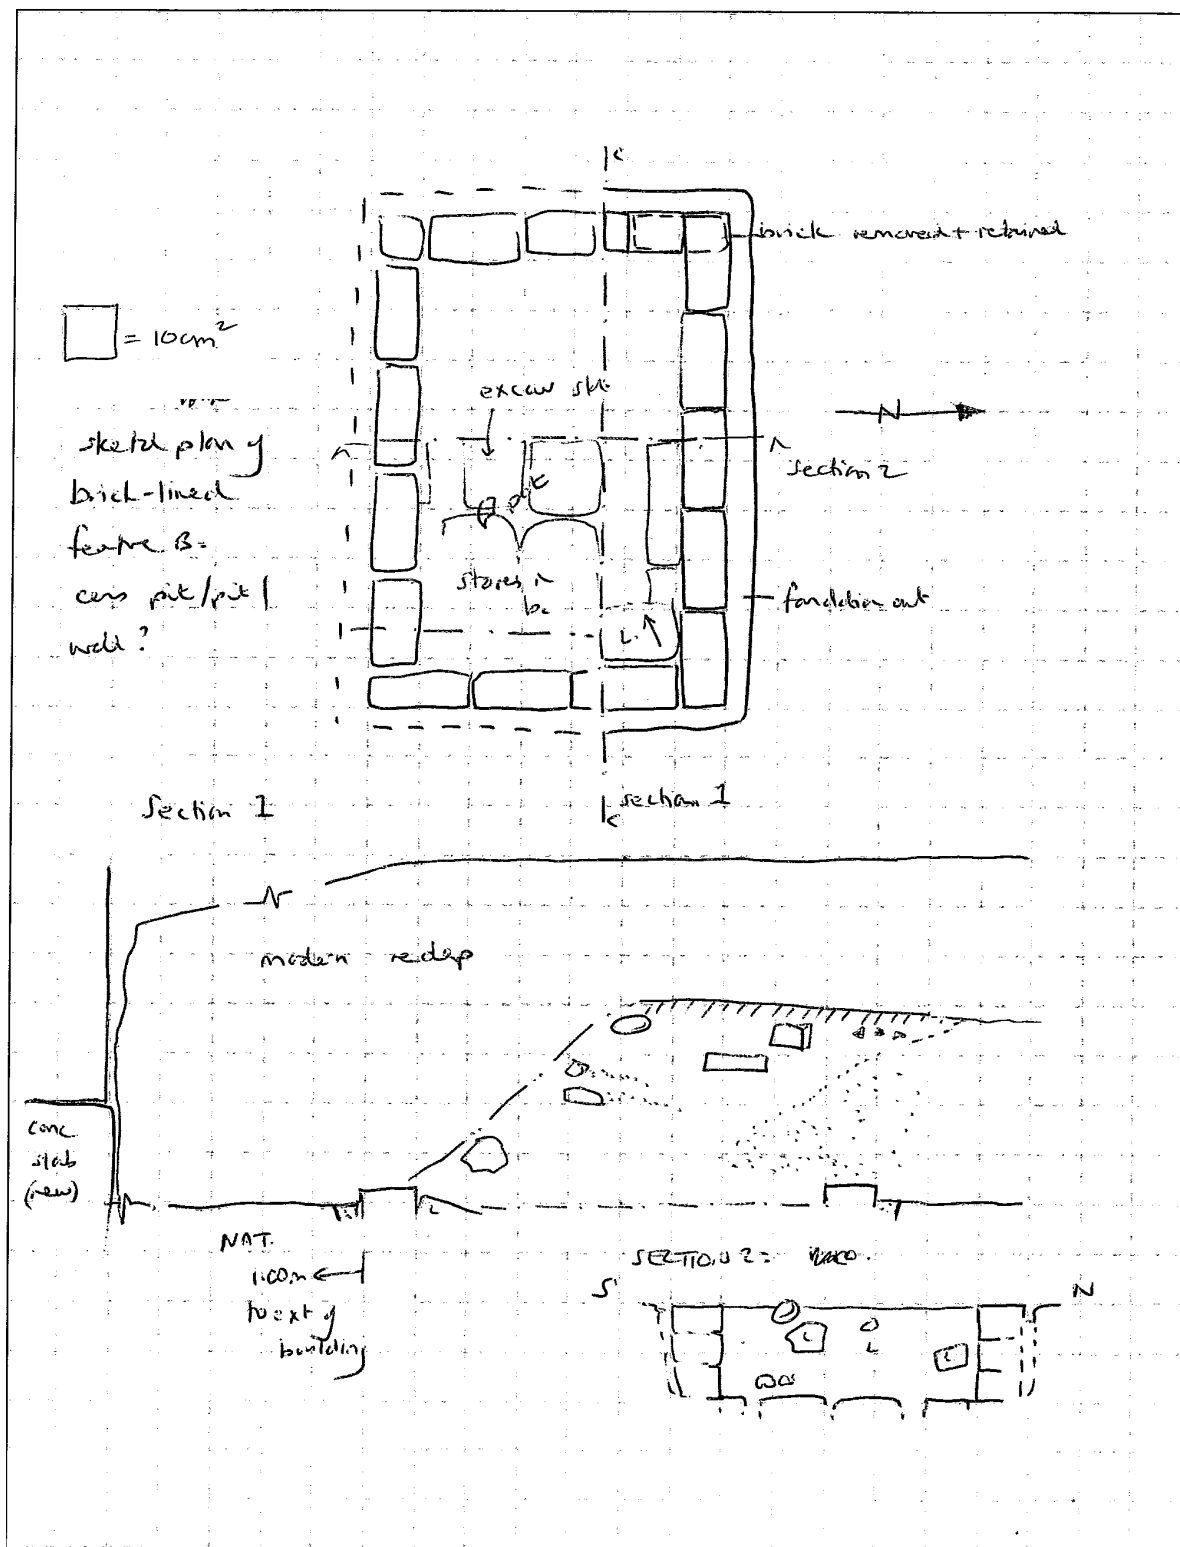 brick removed + retained
= 10cm²
excav
N
sketch plan of
brick-lined
feature B =
cess pit/pit/
well?
section 2
stones in
L.
foundation cut
Section 1
section 1
modern redep
conc
slab
(new)
NAT.
1.00m
to ext of
building
SECTION 2 =
S
N
L
L
L